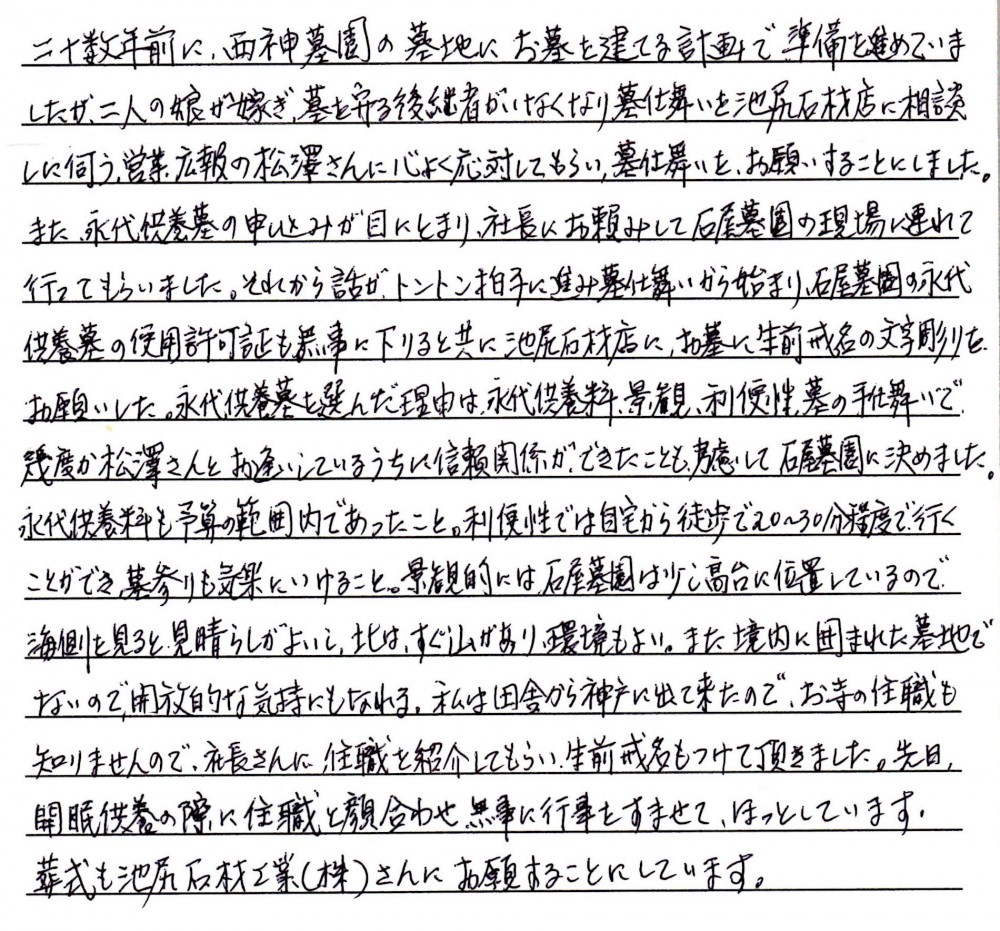 二十数年前に、西神墓園の墓地にお墓を建てる計画で準備を進めていま
したが、二人の娘が嫁ぎ、墓を守る後継者がいなくなり墓仕舞いを池尻石材店に相談
しに伺う、営業、広報の松澤さんに心よく応対してもらい、墓仕舞いを、お願いすることにしました。
また、永代供養墓の申し込みが目にとまり、社長にお頼みして石屋墓園の現場に連れて
行ってもらいました。それから話が、トントン拍子に進み墓仕舞いから始まり、石屋墓園の永代
供養墓の使用許可証も無事に下りると共に池尻石材店に、お墓に生前戒名の文字彫りを、
お願いした。永代供養墓を選んだ理由は、永代供養料、景観、利便性、墓の手仕舞いで、
幾度か松澤さんとお逢いしているうちに信頼関係が、できたことも、考慮して石屋墓園に決めました。
永代供養料も予算の範囲内であったこと。利便性では自宅から徒歩で20～30分程度で行く
ことができ、墓参りも気楽にいけること。景観的には、石屋墓園は少し高台に位置しているので、
海側を見ると、見晴らしがよいし、北は、すぐ山があり、環境もよい。また境内に囲まれた墓地で
ないので、開放的な気持にもなれる。私は田舎から神戸に出て来たので、お寺の住職も
知りませんので、社長さんに住職を紹介してもらい、生前戒名もつけて頂きました。先日、
開眠供養の際に住職と顔合わせ、無事に行事をすませて、ほっとしています。
葬式も池尻石材工業(株)さんにお願することにしています。